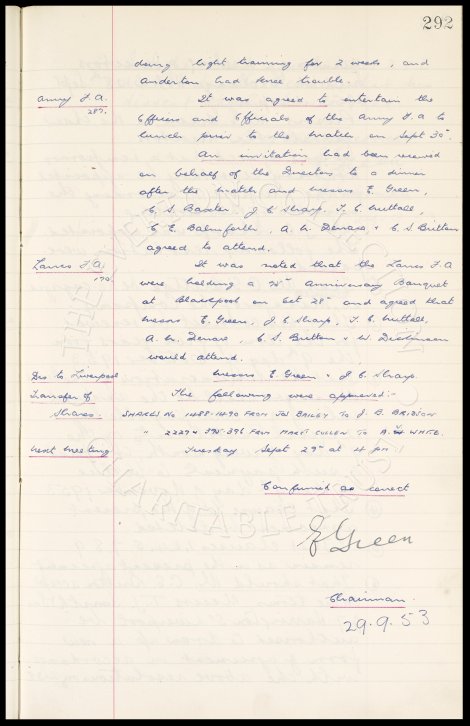 292
doing light training for 2 weeks, and
Anderton had knee trouble.
Army F.A.
287.
It was agreed to entertain the
Officers and Officials of the Army F.A to
lunch prior to the match on Sept 30th.
An invitation had been received
on behalf of the Directors to a dinner
after the match and messrs E. Green,
C. S. Baxter, J. C. Sharp, F. C. Nuttall,
C. E. Balmforth, A. W. Denaro & C. S. Britten
agreed to attend.
Lancs F.A.
190
It was noted that the Lancs F.A
were holding a 75th Anniversary Banquet
at Blackpool on Oct 28th and agreed that
messrs E. Green, J. C. Sharp, F. C. Nuttall,
A. W. Denaro, C. S. Britten & W. Dickinson
would attend.
Dis to Liverpool
Messrs E. Green & J. C. Sharp.
Transfer of
Shares.
The following were approved:-
SHARES No 1488-1490 FROM JW BAILEY TO J. B. BRIDSON
" 2227 & 395-396 FROM MARY CULLEN TO A. H WAITE.
next meeting
Tuesday Sept 29th at 4 pm
Confirmed as correct
E Green
Chairman.
29.9.53
THE EVERTON COLLECTION
CHARITABLE TRUST